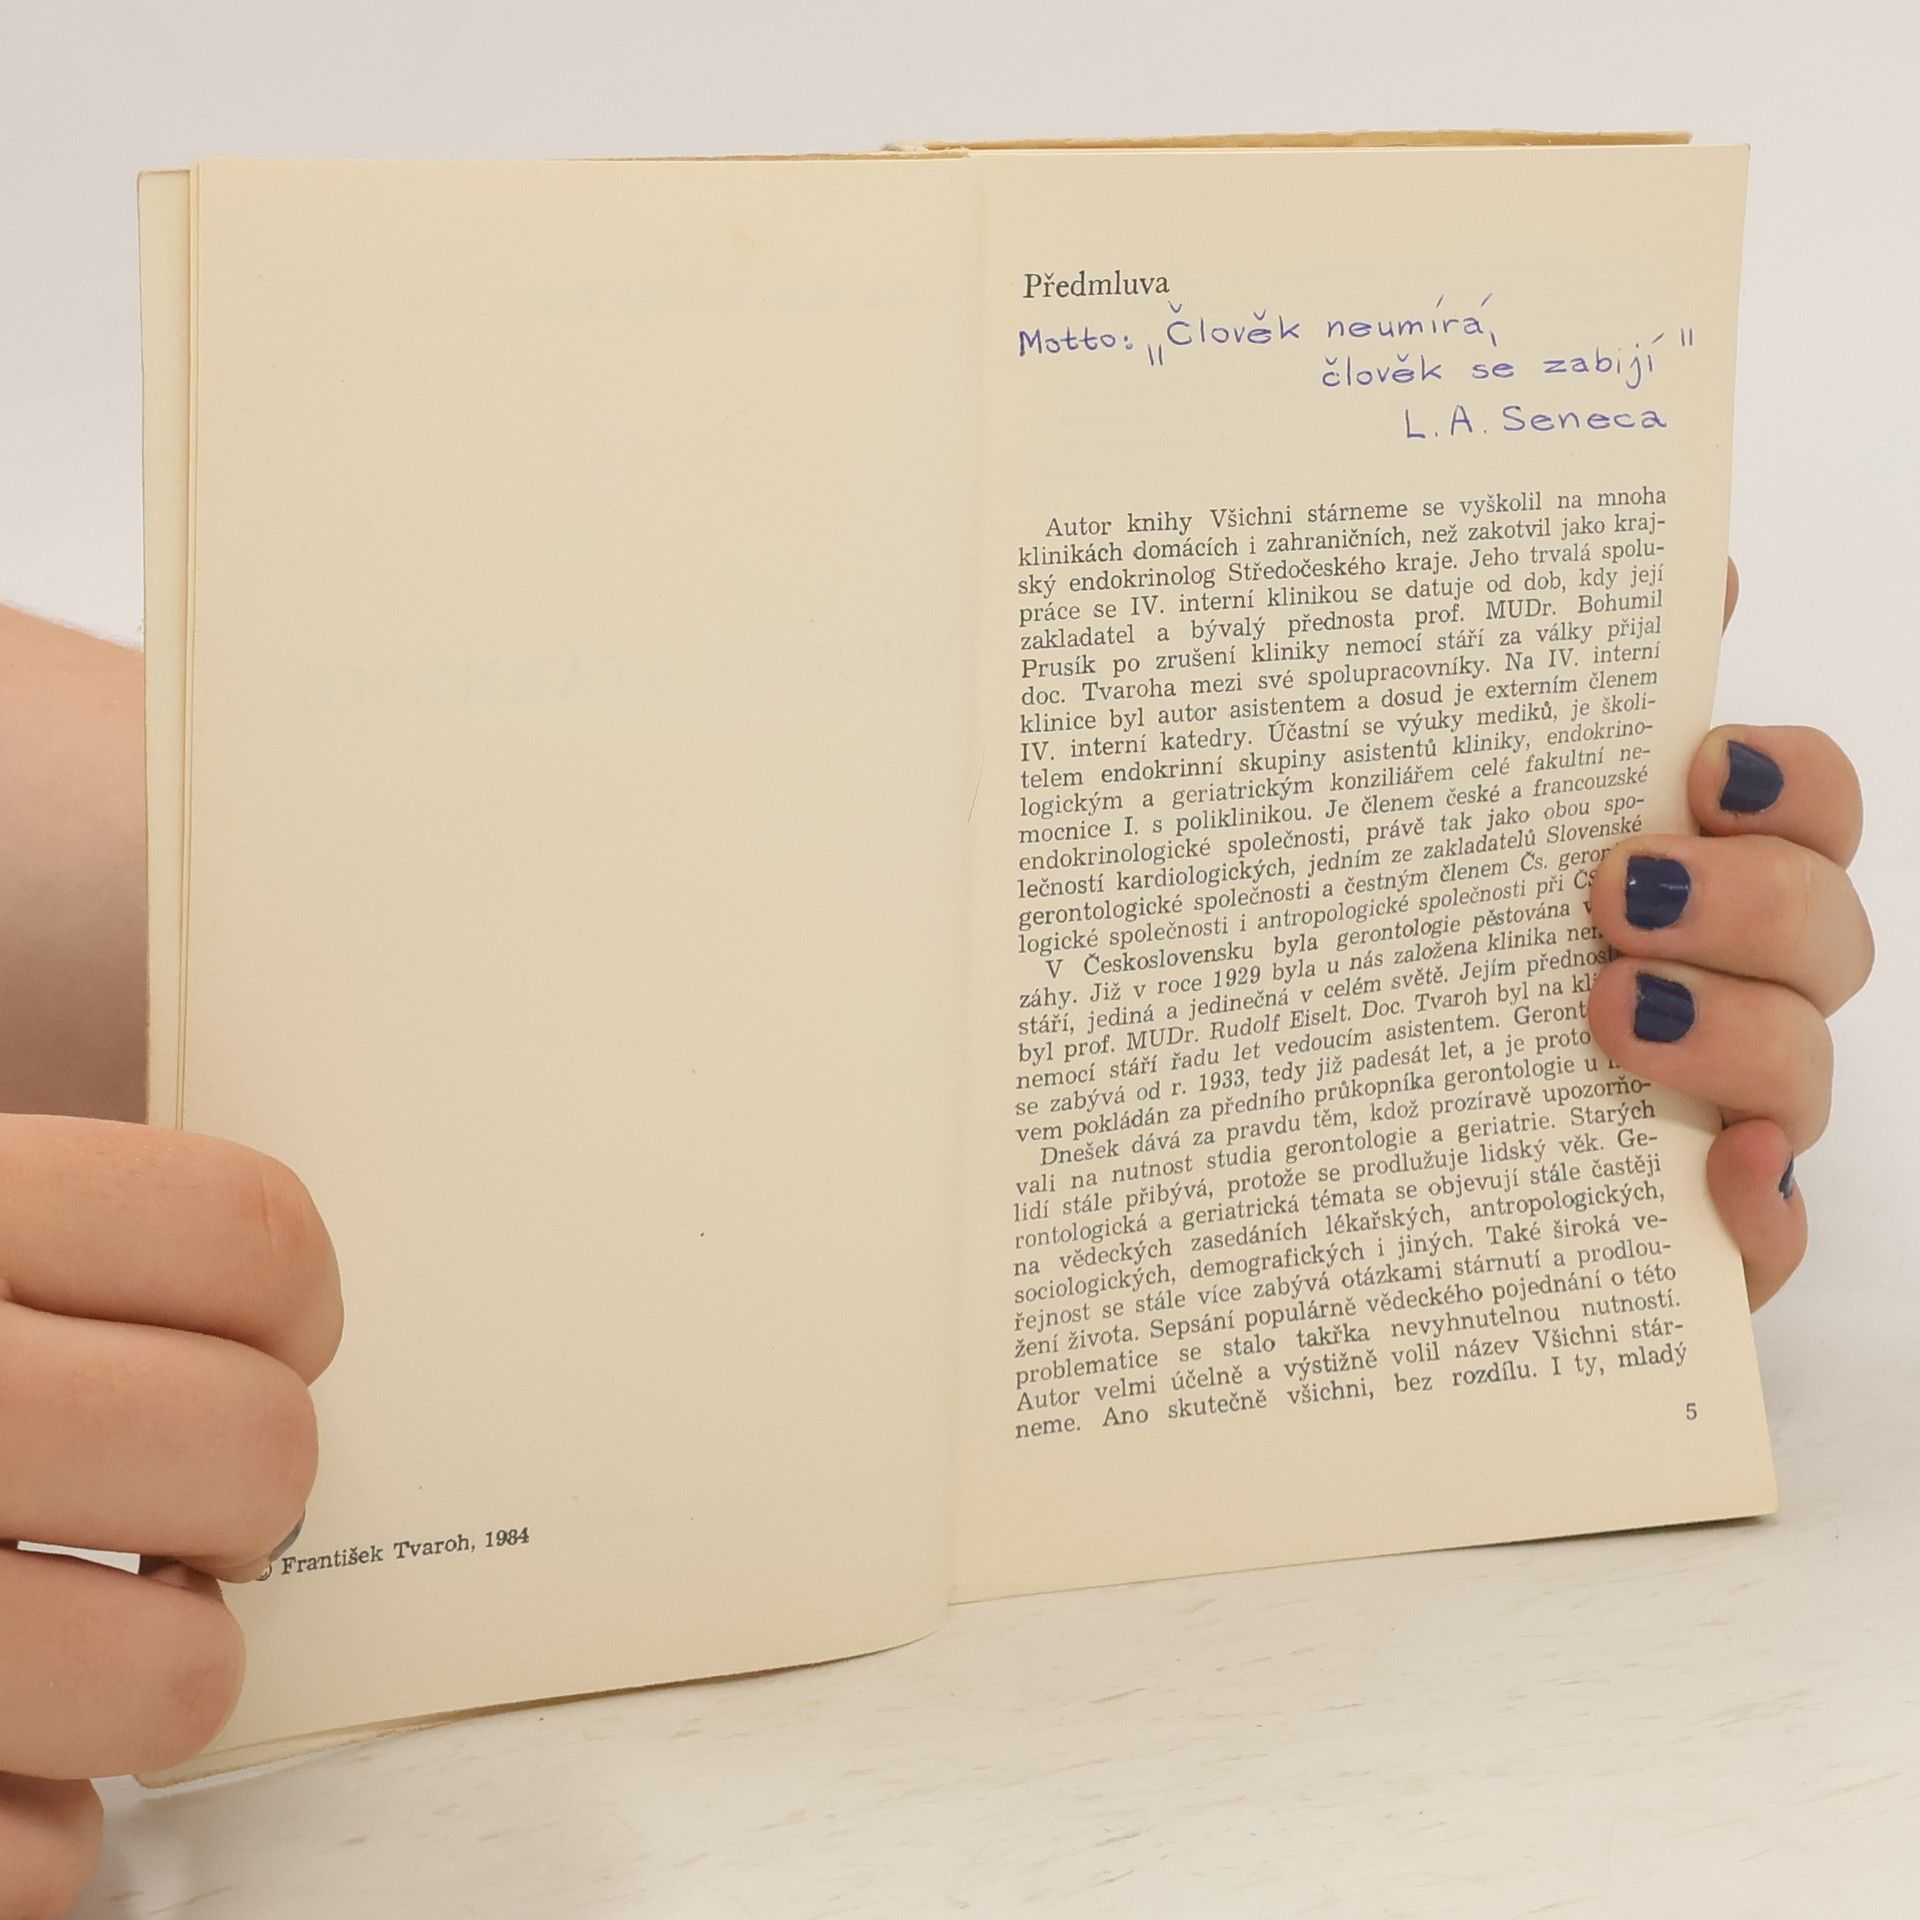 © František Tvaroh, 1984
Předmluva
Motto: „Člověk neumírá,
člověk se zabíjí"
L. A. Seneca
Autor knihy Všichni stárneme se vyškolil na mnoha
klinikách domácích i zahraničních, než zakotvil jako kraj-
ský endokrinolog Středočeského kraje. Jeho trvalá spolu-
práce se IV. interní klinikou se datuje od dob, kdy její
zakladatel a bývalý přednosta prof. MUDr. Bohumil
Prusík po zrušení kliniky nemocí stáří za války přijal
doc. Tvaroha mezi své spolupracovníky. Na IV. interní
klinice byl autor asistentem a dosud je externím členem
IV. interní katedry. Účastní se výuky mediků, je školi-
telem endokrinní skupiny asistentů kliniky, endokrino-
logickým a geriatrickým konziliářem celé fakultní ne-
mocnice I. s poliklinikou. Je členem české a francouzské
endokrinologické společnosti, právě tak jako obou spo-
lečností kardiologických, jedním ze zakladatelů Slovenské
gerontologické společnosti a čestným členem Čs.
logické společnosti i antropologické společnosti při
V Československu byla gerontologie pěstována
záhy. Již v roce 1929 byla u nás založena klinika
stáří, jediná a jedinečná v celém světě. Jejím
byl prof. MUDr. Rudolf Eiselt. Doc. Tvaroh byl na
nemocí stáří řadu let vedoucím asistentem.
se zabývá od r. 1933, tedy již padesát let, a je proto
vem pokládán za předního průkopníka gerontologie u
Dnešek dává za pravdu těm, kdož prozíravě upozorňo-
vali na nutnost studia gerontologie a geriatrie. Starých
lidí stále přibývá, protože se prodlužuje lidský věk. Ge-
rontologická a geriatrická témata se objevují stále častěji
na vědeckých zasedáních lékařských, antropologických,
sociologických, demografických i jiných. Také široká ve-
řejnost se stále více zabývá otázkami stárnutí a prodlou-
žení života. Sepsání populárně vědeckého pojednání o této
problematice se stalo takřka nevyhnutelnou nutností.
Autor velmi účelně a výstižně volil název Všichni stár-
neme. Ano skutečně všichni, bez rozdílu. I ty, mladý
5